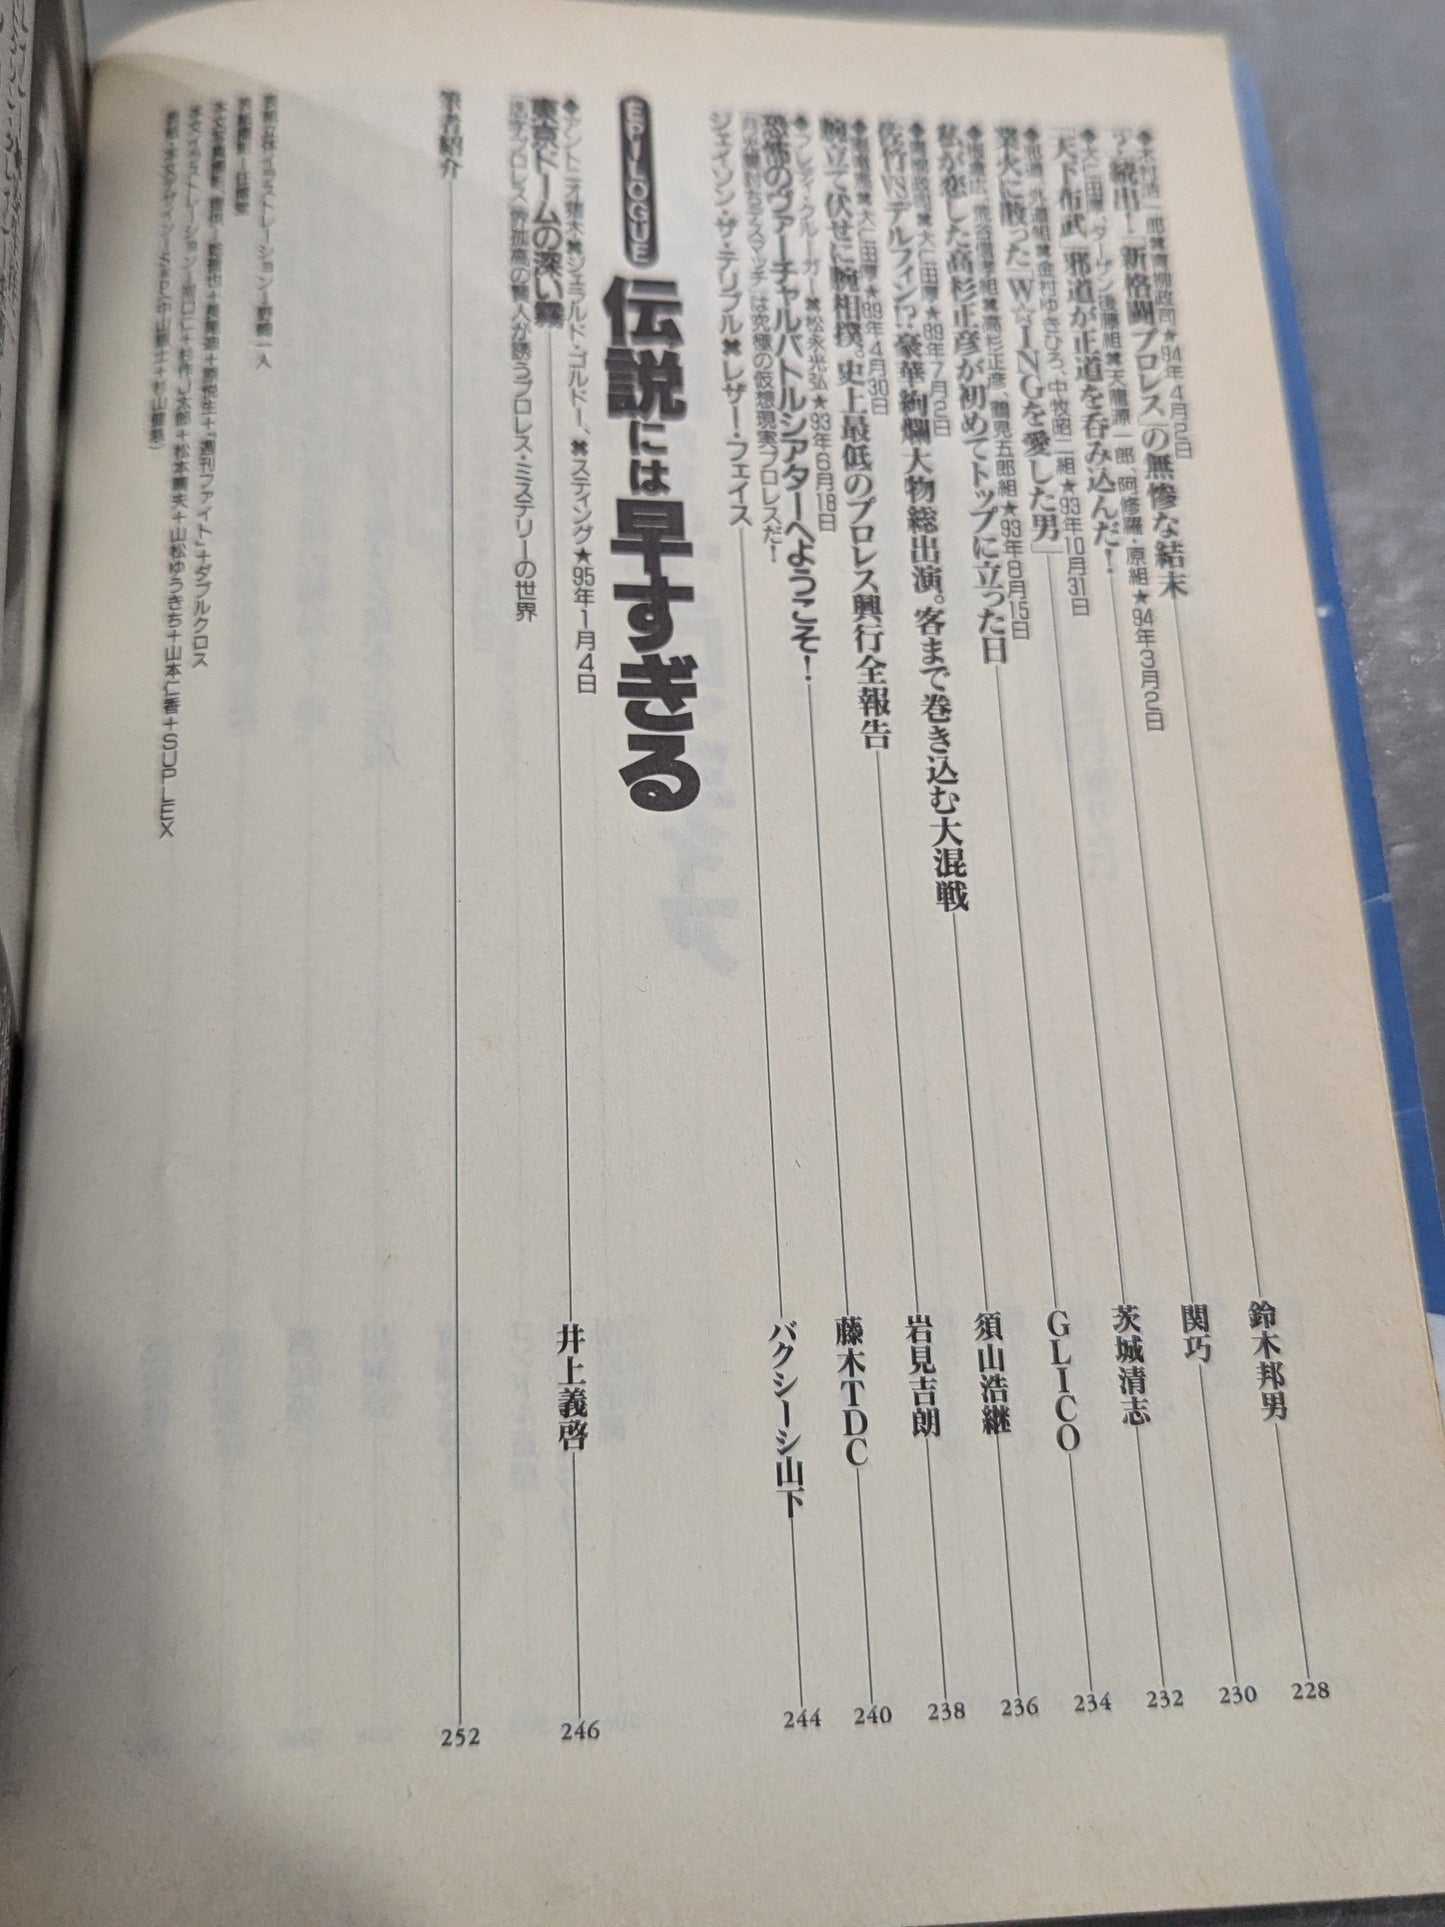 ◆木村浩一郎✖青柳政司★94年4月2日
?続出!「新格闘プロレス」の無惨な結末
鈴木邦男
228
◆大仁田厚、ターザン後藤組✖天龍源一郎、阿修羅・原組★94年3月2日
「天下布武」邪道が正道を呑み込んだ!
関巧
230
金村ゆきひろ、中牧昭二組★93年10月31日
業火に散った「W☆INGを愛した男」
茨城清志
232
荒谷信孝組✖高杉正彦、鶴見五郎組★93年8月15日
私が恋した高杉正彦が初めてトップに立った日
GLICO
234
◆青柳政司✖大仁田厚★89年7月2日
佐竹VSデルフィン!?豪華絢爛大物総出演。客まで巻き込む大混戦
須山浩継
236
大仁田厚★89年4月30日
腕立て伏せに腕相撲。史上最低のプロレス興行全報告
岩見吉朗
238
◆フレディ・クルーガー✖松永光弘★93年6月18日
恐怖のヴァーチャルバトルシアターへようこそ!
藤木TDC
240
デスマッチ」は究極の仮想現実プロレスだ!
ジェイソン・ザ・テリブル✖レザー・フェイス
バクシーシ山下
244
EPILOGUE 伝説には早すぎる
◆アントニオ猪木✖ジェラルド・ゴルドー、✖スティング★95年1月4日
東京ドームの深い霧
井上義啓
246
活字プロレス界孤高の賢人が誘うプロレス・ミステリーの世界
筆者紹介
252
表紙立体イラストレーション=野崎一人
「週刊ファイト」+ダブルクロス
本文イラストレーション=
+松本
+山松ゆうきち+山本仁香+SUPLEX